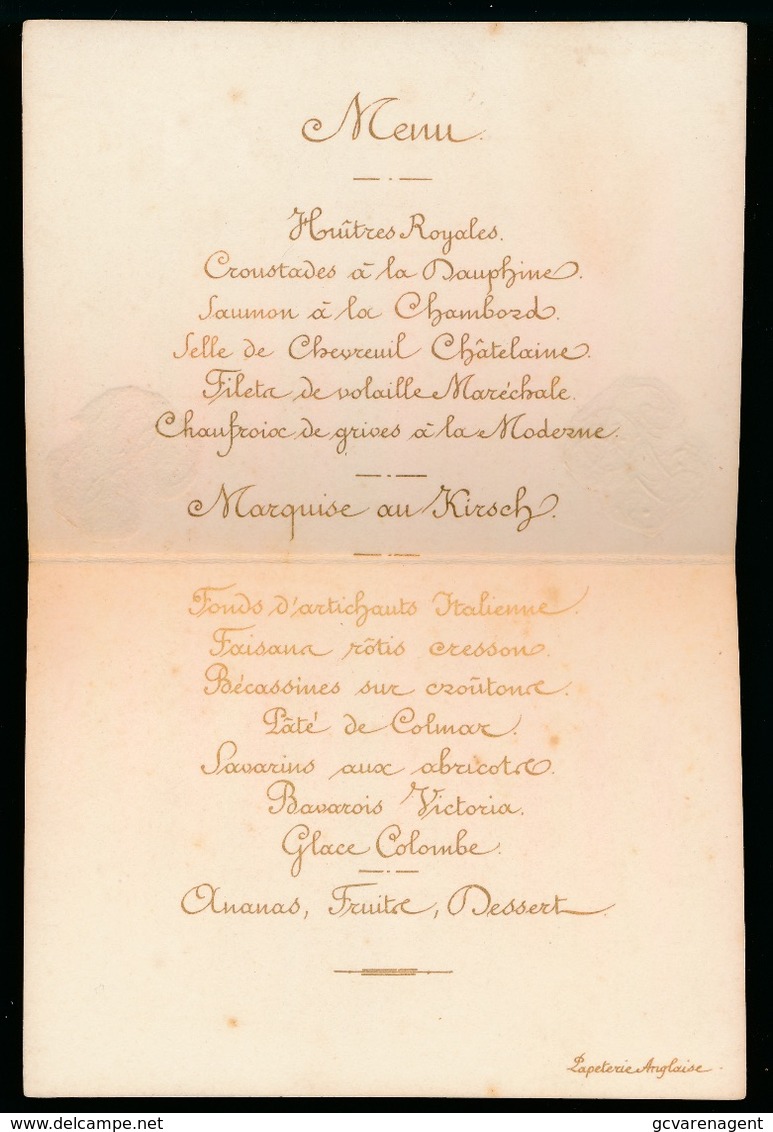 Menu.
Huîtres Royales.
Croustades à la Dauphine.
Saumon à la Chambord.
Selle de Chevreuil Châtelaine.
Filets de volaille Maréchale.
Chaufroix de grives à la Moderne.
Marquise au Kirsch.
Fonds d'artichauts Italienne.
Faisans rôtis cresson.
Bécassines sur croûtons.
Pâté de Colmar.
Savarins aux abricots.
Bavarois Victoria.
Glace Colombe.
Ananas, Fruits, Dessert
Papeterie Anglaise.
delcampe.net
gcvarenagent